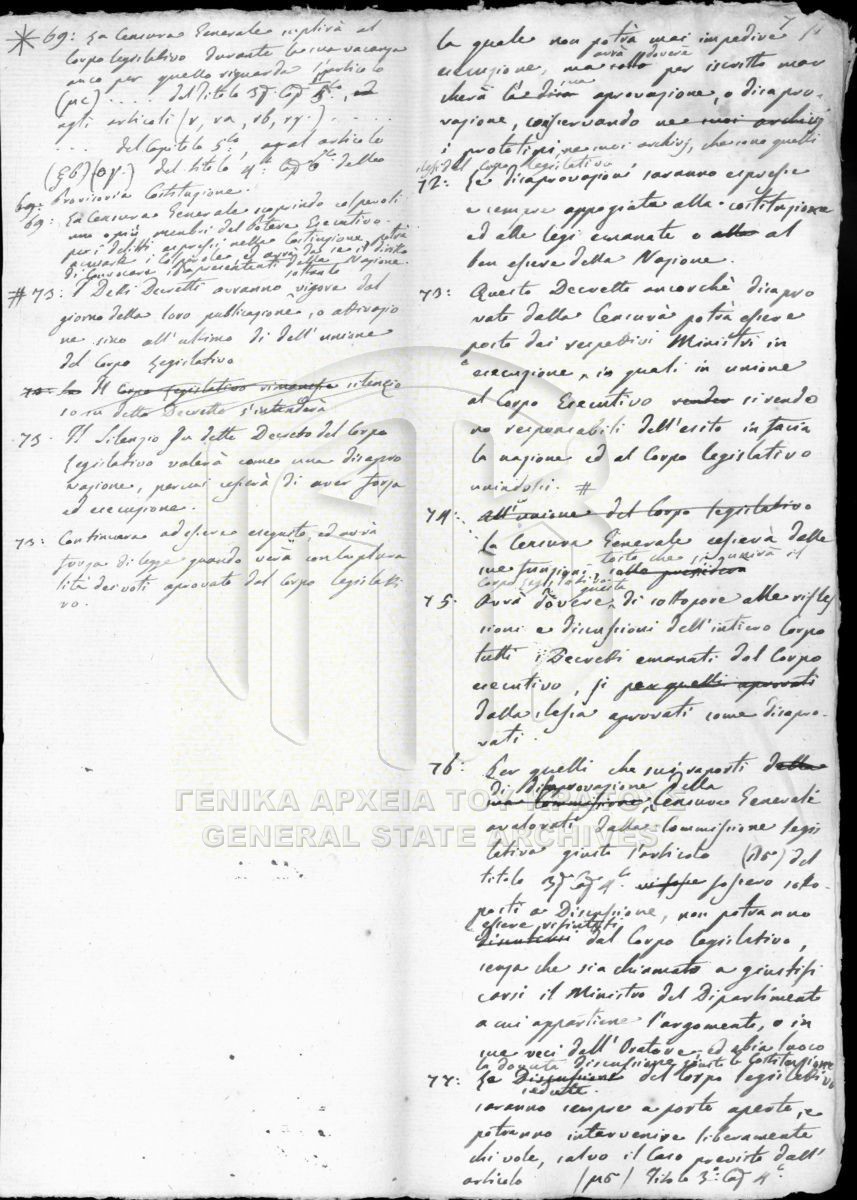 * 69: La Censura Generale suplirà al
Corpo legislativo durante la sua vacanza
anco per quello riguarda l'articolo
del titolo 3º Cap
agli articoli
del Capitolo 5to, al articolo
del titolo 4to Cap 6to della
69: Provisoria Costituzione.
69: La Censura Generale scoprindo colpevoli
uno o più membri del Potere Esecutivo
per i delitti espressi nella Costituzione potrà
accusare i colpevoli, ed avrà da se il diritto
di convocare i rapresentanti della Nazione.
soltanto
# 73: I Detti Decretti avranno vigore dal
giorno della loro publicazione, o attivazio
ne sino all'ultimo di dell'unione
del Corpo Legislativo
Il Corpo Legislativo silenzio
so su detto Decretto s'intenderà
73. Il Silenzio su detto Decreto del Corpo
Legislativo valerà come una disapro
vazione, per cui cesserà di aver forza
ed esecuzione.
73: Continuerà ad essere eseguito, ed avrà
forza di legge quando verà con la plura
lità dei voti aprovato dal Corpo Legislati
vo.
7
la quale non potrà mai impedire
avrà dovere
esecuzione, ma per iscritto mar
sua
cherà la aprovazione, o disapro-
vazione, conservando ne suoi archivj
i protolipi ne suoi archivj, che sono quelli
istessi del Corpo Legislativo
72: Le disaprovazioni saranno espresse
e sempre appogiate alla costituzione
ed alle legi emanate o alla al
ben essere della Nazione.
73: Questo Decretto ancorchè disapro
vato dalla Censura potrà essere
posto dai respettivi Ministri in
esecuzione, i quali in unione
al Corpo Esecutivo si rendo
no responsabili dell'esito in faccia
la nazione ed al Corpo legislativo
uniendosi. #
74: all'unione del Corpo legislativo
La Censura Generale cesserà dalle
tosto che si unirà il
sue funzioni
Corpo legislativo
questa
75. Avrà dovere di sottopore alle rifles
sioni e discussioni dell'intiero Corpo
tutti i Decretti emanati dal Corpo
esecutivo, si per quelli aprovati
dalla stessa aprovati come disapro-
vati.
76: Per quelli che sui raporti della
di disaprovazione della
sua Commissione, Censura Generale
avalorati dalla Commissione legis
lativa giusta l'articolo del
titolo 3º Cap 4to fossero sotto
posti a Discussione, non potranno
essere rifiutati
discutersi dal Corpo Legislativo,
senza che sia chiamato a giustifi
carsi il Ministro del Dipartimento
a cui appartiene l'argomento, o in
sue veci dell'Oratore, ed abia luoco
la dovuta discussione giusta la Costituzione
77: Le Discussioni del Corpo legislativo
sedute
saranno sempre a porte aperte, e
potranno intervenire liberamente
chi vole, salvo il Caso previsto dall'
articolo Titolo 3º Cap 4to
ΓΕΝΙΚΑ ΑΡΧΕΙΑ ΤΟΥ ΚΡΑΤΟΥΣ
GENERAL STATE ARCHIVES